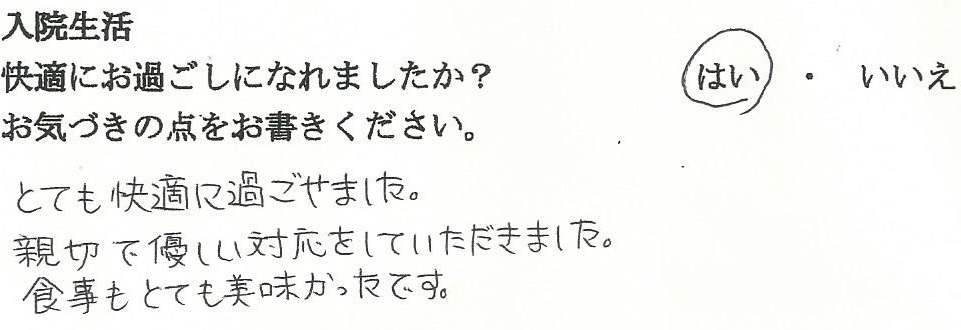 入院生活
快適にお過ごしになれましたか? はい ・ いいえ
お気づきの点をお書きください。
とても快適に過ごせました。
親切で優しい対応をしていただきました。
食事もとても美味かったです。